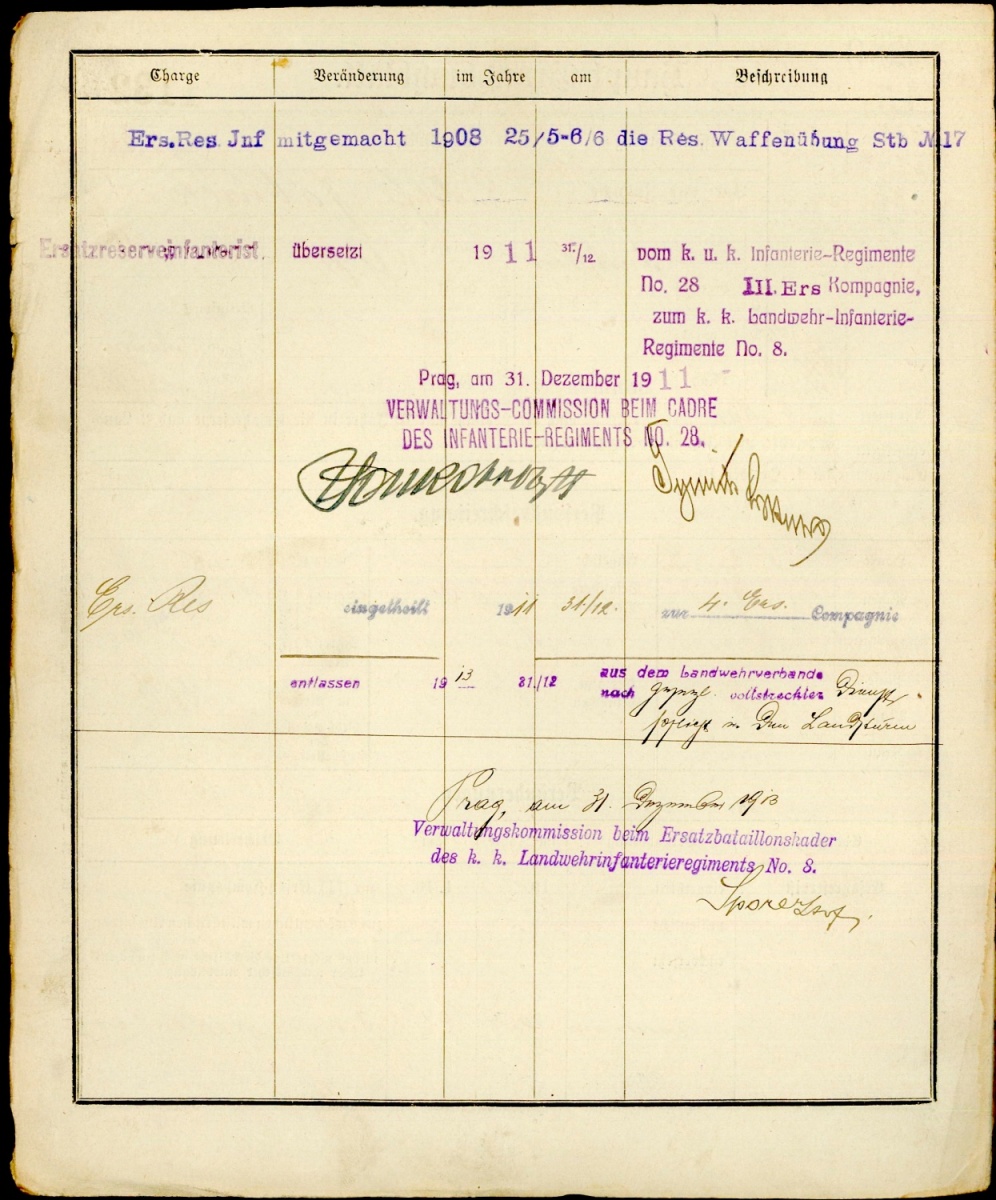 Charge Veränderung im Jahre am Beschreibung
Ers. Res. Inf mitgemacht 1908 25/5-6/6 die Res. Waffenübung Stb № 17
Ersatzreserveinfanterist. übersetzt 1911 31./12 vom k. u. k. Infanterie-Regimente
No. 28 III. Ers Kompagnie,
zum k. k. Landwehr-Infanterie-
Regimente No. 8.
Prag, am 31. Dezember 1911
VERWALTUNGS-COMMISSION BEIM CADRE
DES INFANTERIE-REGIMENTS NO. 28.
Ers. Res eingetheilt 1911 31./12. zur 4. Ers. Compagnie
entlassen 1913 31./12 aus dem Landwehrverbande
nach vollstreckter Dienst
pflicht in den Landsturm
Prag, am 31. Dezember 1913
Verwaltungskommission beim Ersatzbataillonskader
des k. k. Landwehrinfanterieregiments No. 8.